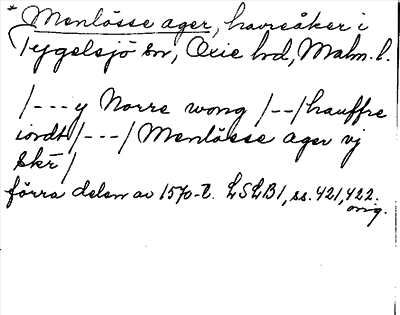 * Menlösse ager, havreåker i
Tygelsjö sn, Oxie hd, Malm. l.
/---y Norre wong /--/hauffre
iordt/---/ Menlösse ager vj
Skr/
förra delen av 1570-t. LSLB1, ss. 421, 422.
orig.